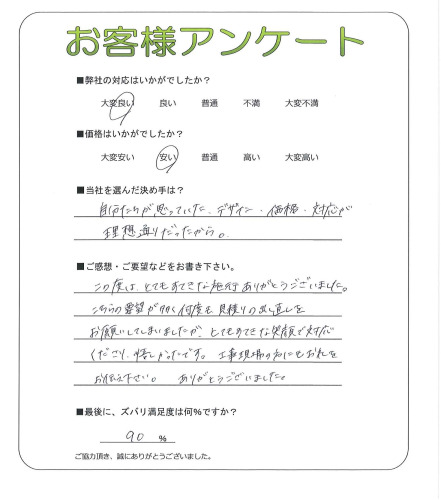 お客様アンケート
■弊社の対応はいかがでしたか?
大変良い 良い 普通 不満 大変不満
■価格はいかがでしたか?
大変安い 安い 普通 高い 大変高い
■当社を選んだ決め手は?
自分たちが思っていた、デザイン・価格・対応が
理想通りだったから。
■ご感想・ご要望などをお書き下さい。
この度は、とてもすてきな施行ありがとうございました。
こちらの要望が多く何度も見積りの出し直しを
お願いしてしまいましたが、とてもすてきな笑顔で対応
くださり、嬉しかったです。工事現場の方にもお礼を
お伝え下さい。 ありがとうございました。
■最後に、ズバリ満足度は何%ですか?
90 %
ご協力頂き、誠にありがとうございました。